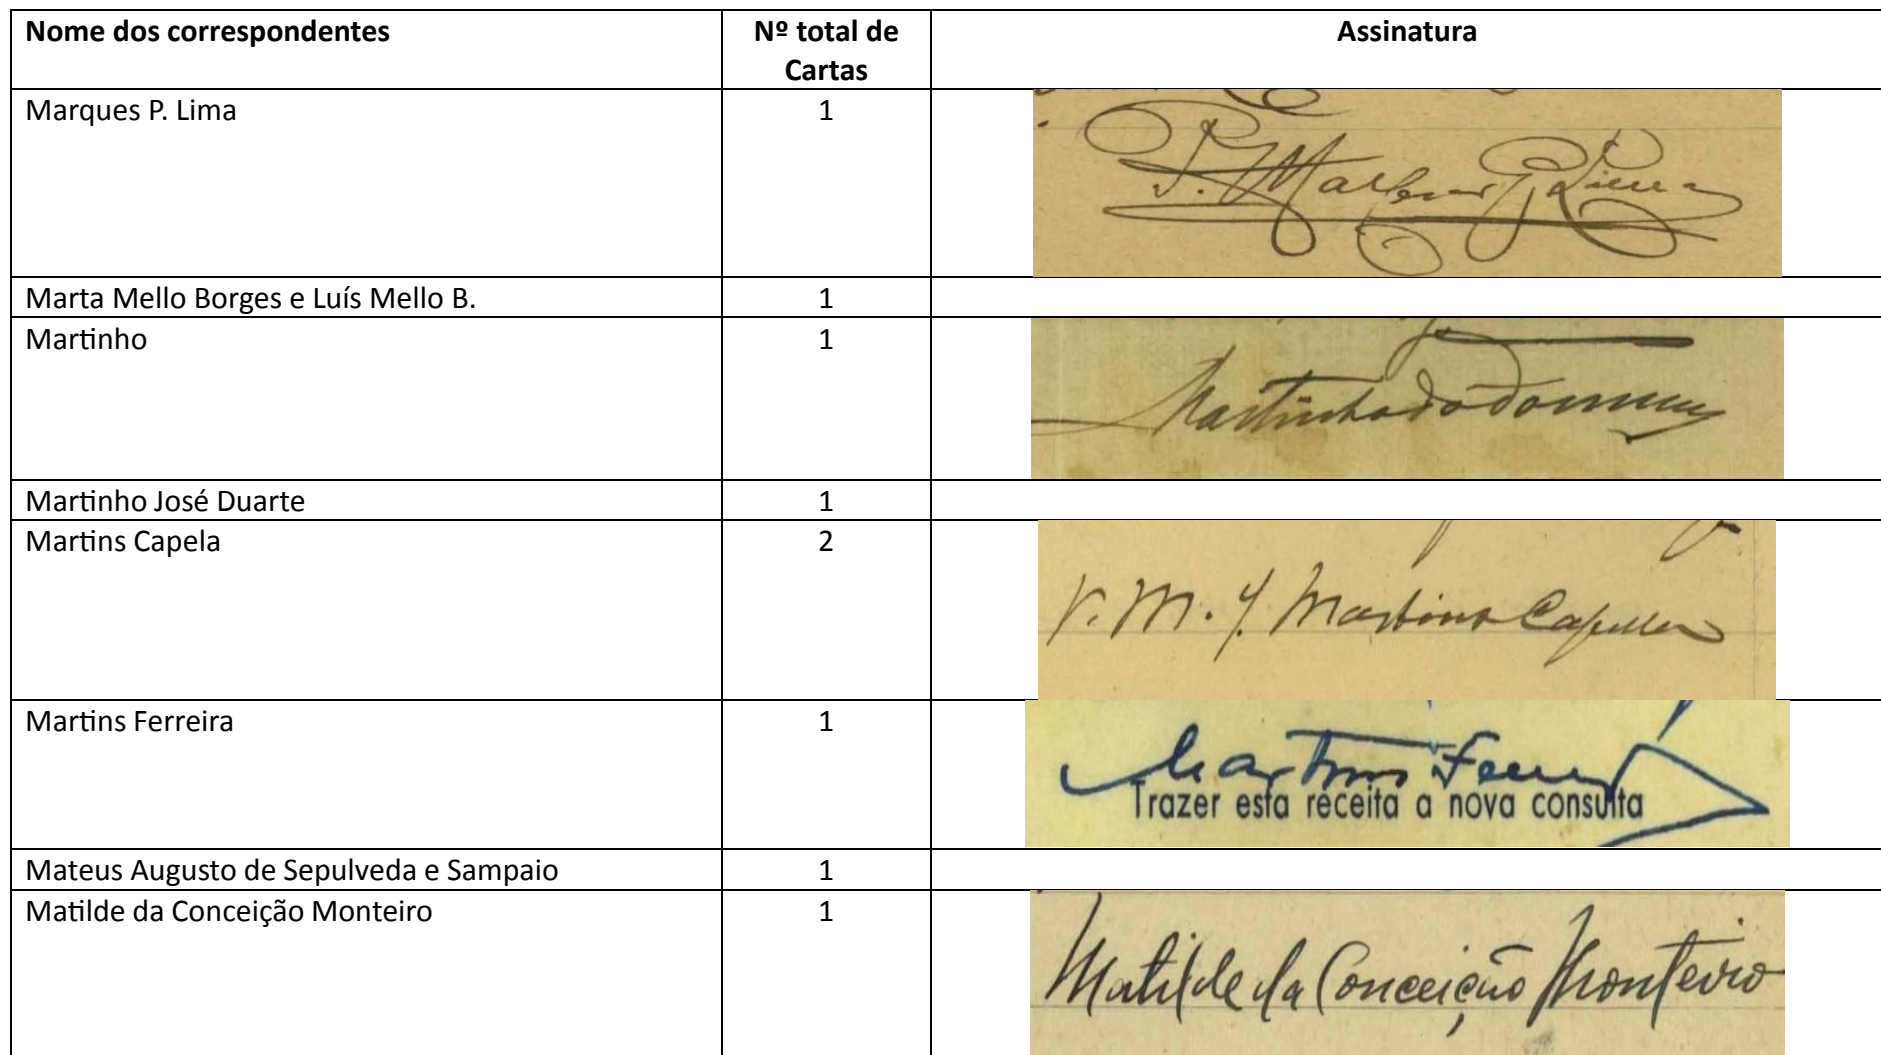 Nome dos correspondentes
Nº total de
Cartas
Assinatura
Marques P. Lima
1
P. Lima
Marta Mello Borges e Luís Mello B.
1
Martinho
1
Martinho do
Martinho José Duarte
1
Martins Capela
2
V. M. J. Martins Capella
Martins Ferreira
1
Martins
Trazer esta receita a nova consulta
Mateus Augusto de Sepulveda e Sampaio
1
Matilde da Conceição Monteiro
1
Matilde da Conceição Monteiro